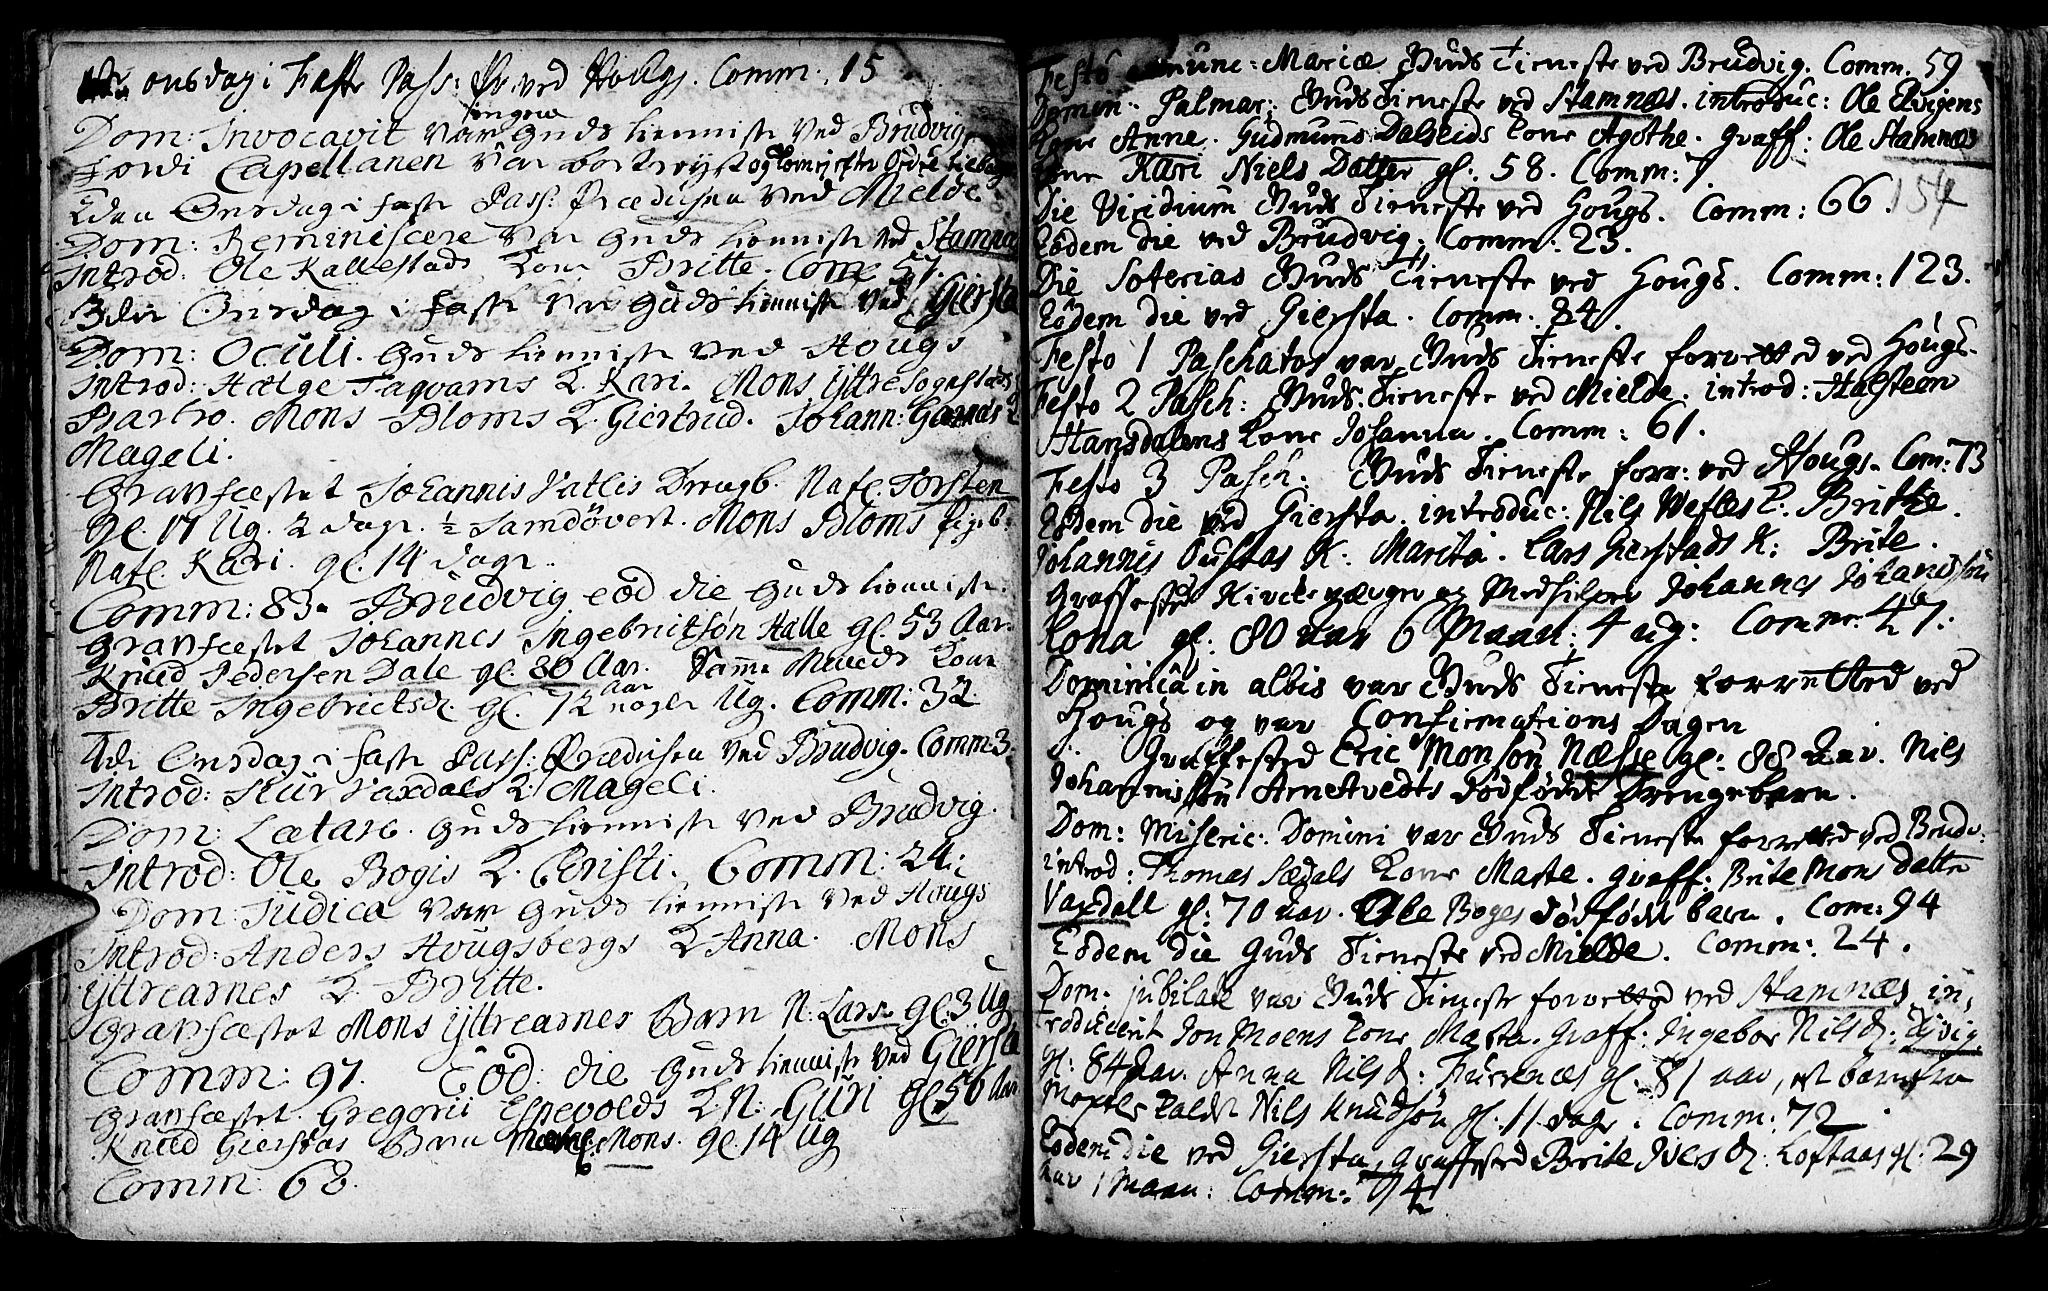 onsdag i Faste Pass: Pr. ved Hougs. Comm: 15
ingen
Dom: Invocavit var Guds tienniste ved Brudvig
Fordi Capellanen var bortreyst og kom ej efter Ordre tilbage
2den Onsdag i faste Pass: Prædiken ved Mielde
Dom: Reminiscere var Guds tienniste ved Stamnæs
Introd: Ole Kallestads Kone Britte. Com 57.
3die Onsdag i faste var Guds tienniste ved Giersta
Dom: Oculi. Guds tienniste ved Hougs
Introd: Hælge Fagvarms K. Kari. Mons Yttre
Mons Bloms K. Giertrud. Johann: Garnæs K
Mageli.
Gravfæstet Johannis Vatlis Drengb. Nafl. Torsten
gl. 17 Ug. 2 dage. ½ Mons Bloms pigeb.
Nafl. Kari. gl. 14 dage.
Comm: 83. Brudvig eod die Guds tienniste.
Gravfæstet Johannes Ingebrictsøn Halle gl. 53 Aar.
Knud Pedersen Dale gl. 80 Aar. Samme Kone
Aar
Britte Ingebrictsd. gl. 72 nogle Ug. Comm: 32
4de Onsdag i faste Pass: Prædiken ved Brudvig. Comm 3.
Introd: Siur Vaxdals K. Mageli.
Dom: Lætare. Guds tienniste ved Brudvig.
Introd: Ole Bogis K. Christi. Comm: 24.
Dom: Judica var Guds tienniste ved Hougs
Introd: Anders Hougsbergs K Anna. Mons
Yttrearnes K. Britte.
Gravfæstet Mons Yttrearnes Barn N. Lars gl. 3 Ug
Comm: 97. Eod: die Guds tienniste ved Giersta
Gravfæstet. Gregorii Espevolds K. N. Guri gl. 56 Aar
Knud Gierstas Barn Mons. gl. 14 Ug
Comm: 68.
Festo Annunc: Mariæ Guds Tieneste ved Brudvig. Comm. 59
Domin: Palmar: Guds Tieneste ved Stamnæs. introduc: Ole Elvigens
Kone Anne. Gudmuns Dalseids Kone Agothe. graff: Ole Stamnæs
Kone Kari Niels Datter gl. 58. Comm: 7
Die Viridium Guds Tieneste ved Hougs. Comm: 66.
154
Eodem die ved Brudvig. Comm: 23.
Die Soterias Guds Tieneste ved Hougs. Comm: 123.
Eodem die ved Giersta. Comm. 84.
Festo 1 Paschatos var Guds Tieneste forretted ved Hougs.
Festo 2 Pasch: Guds Tieneste ved Mielde. introd: Halsteen
Hansdalens Kone Johanna. Comm: 61.
Festo 3 Pasch. Guds Tieneste forr: ved Hougs. Com: 73
Eodem die ved Giersta. introduc: Nils Wefles K. Britte.
Johannis K. Marita. Lars Gierstads K: Brite.
Graffested Kirke værger og Medhielper Johannes Johannessøn
Kona gl. 80 aar 6 Maan: 4 ug: Comm: 47.
Dominica in albis var Guds Tieneste forretted ved
Hougs og var Confirmations Dagen
Graffested Eric Monsøn Næsse gl: 88 Aar. Nils
Johannissøn Arnetvedts dødfødde Drengebarn.
Dom: Miseric: Domini var Guds Tieneste forretted ved Brudv:
introd: Thomas Sædals Kone Marte. graff: Brite Mons datter
Vaxdall gl: 70 aar. Ole Boges dødfødde barn. Com: 94
Eodem die Guds Tieneste ved Mielde. Comm: 24.
Dom. jubilate var Guds Tieneste forretted ved Stamnæs, in,
troducerit Jon Moens Kone Marta. Graff: Ingebor Nilsd: Elvig
gl: 84 Aar. Anna Nilsd: Fursnæs gl. 81 aar, et barn fra
Nils Knudsøn gl. 11 dage. Comm: 72
Eodem die ved Giersta, graffested Brite Ivers d: Loftaas gl. 29
aar 1 Maan: Comm: 94